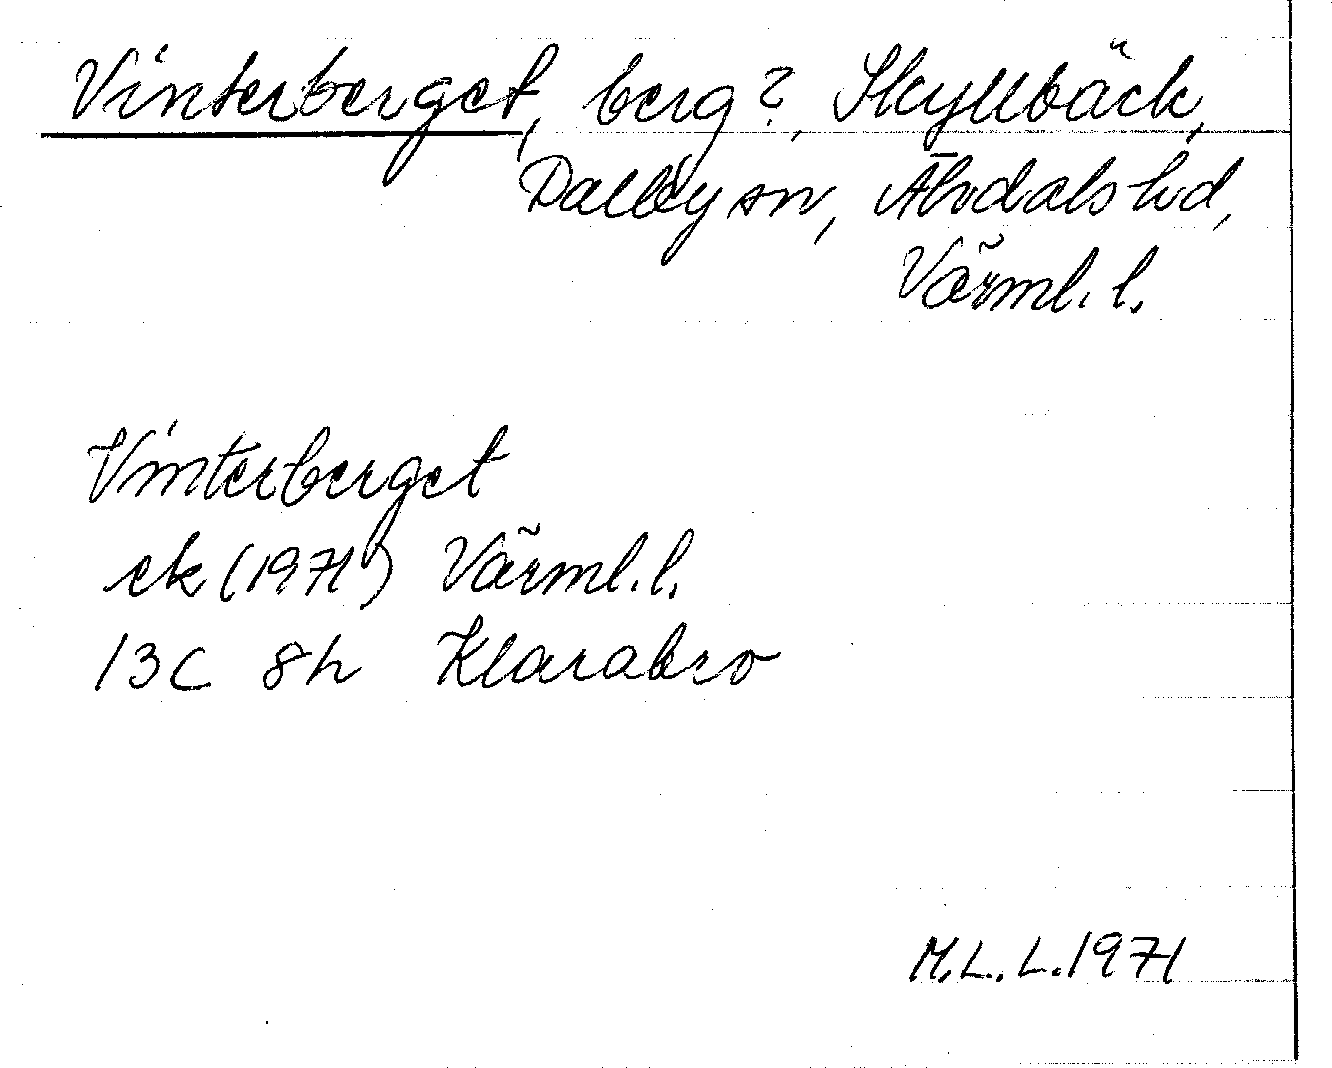 Vinterberget, berg? Skyllbäck,
Dalby sn, Älvdals hd,
Värml. l.
Vinterberget
ek (1971) Värml. l.
13C 8h Klarabro
M.L.L. 1971